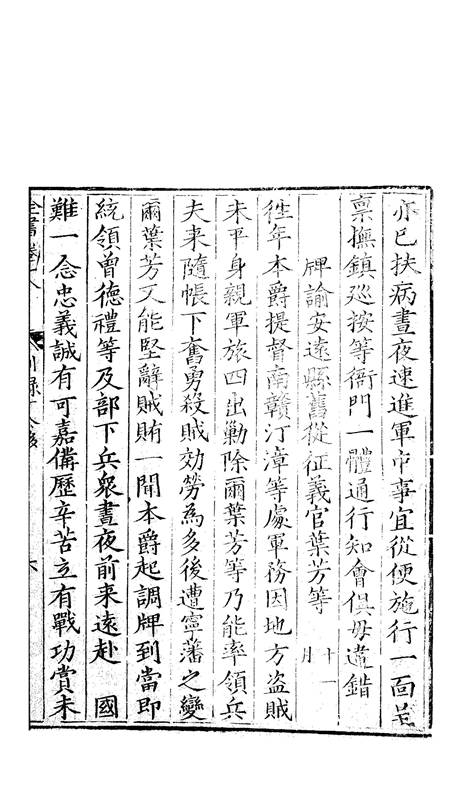 亦已扶病晝夜速進軍中事宜從便施行一面呈
禀撫鎮廵按等衙門一體通行知會俱毋違錯
牌諭安遠縣舊從征義官葉芳等 十一月
徃年本爵提督南贛汀漳等處軍務因地方盗賊
未平身親軍旅四出勦除爾葉芳等乃能率領兵
夫来隨帳下奮勇殺賊効勞為多後遭寧藩之變
爾葉芳又能堅辭賊賄一聞本爵起調牌到當即
統領曾德禮等及部下兵衆晝夜前来遠赴 國
難一念忠義誠有可嘉備歷辛苦立有戰功賞未